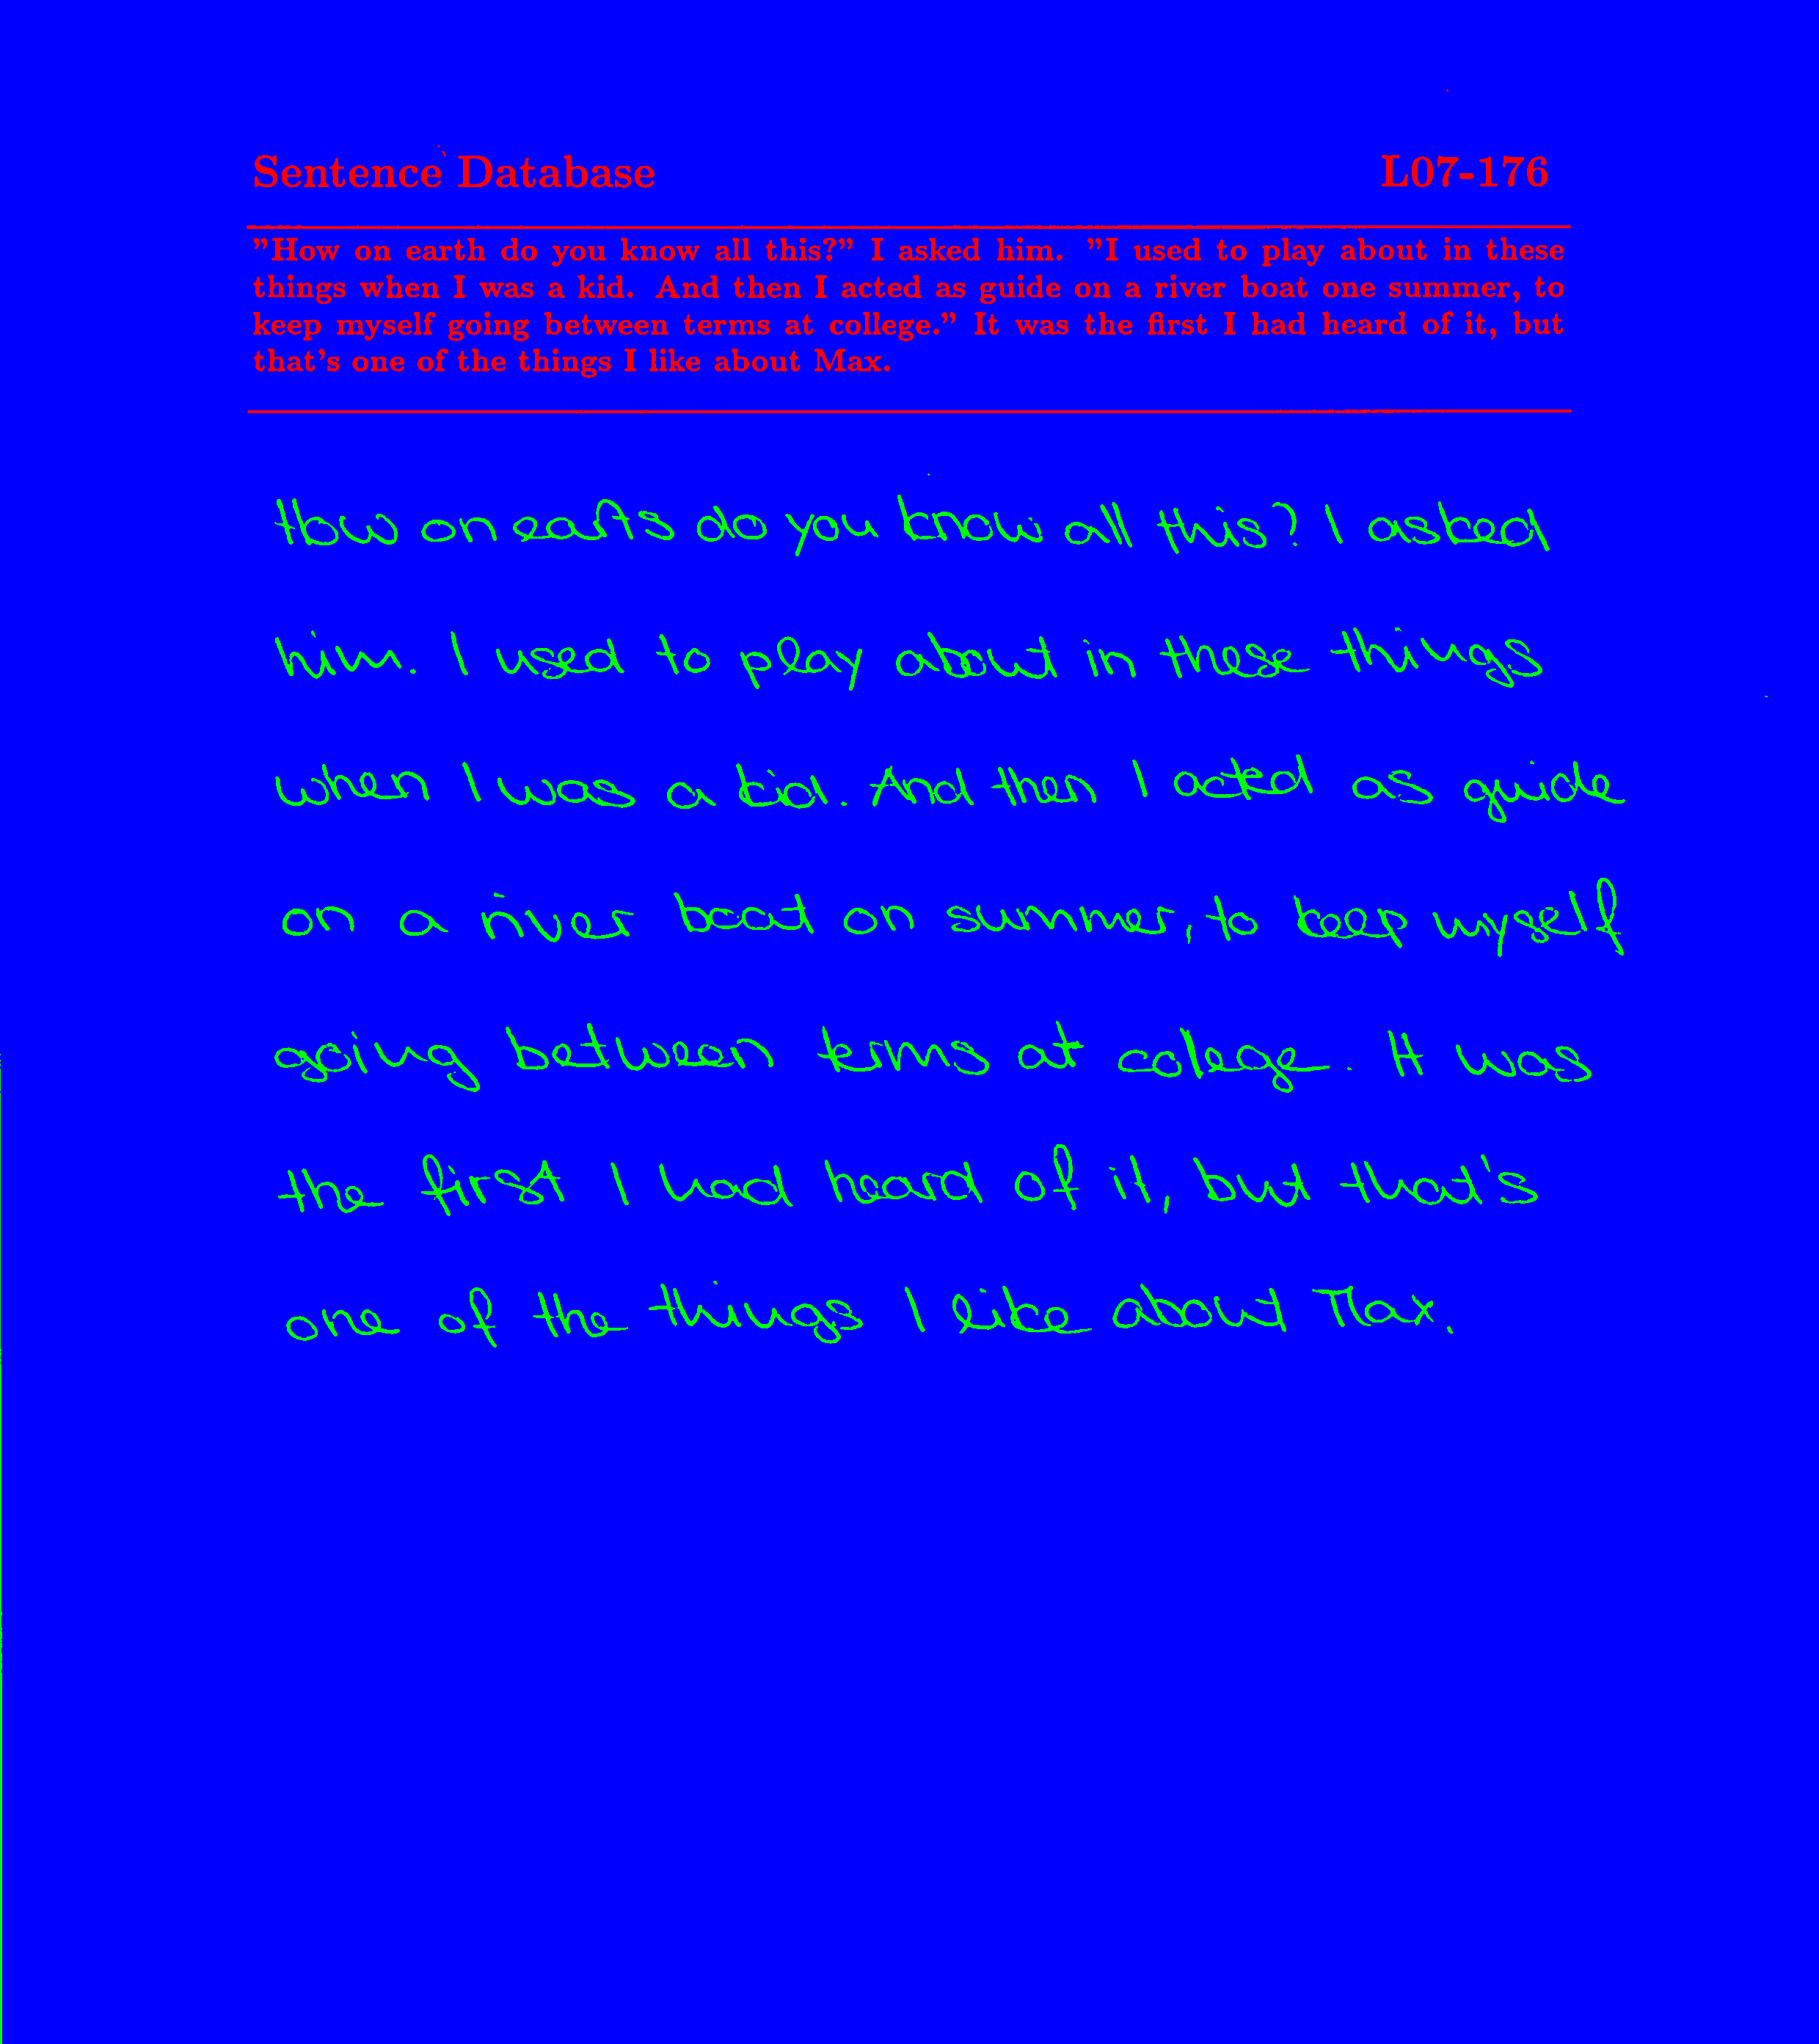 Sentence Database L07-176
"How on earth do you know all this?" I asked him. "I used to play about in these
things when I was a kid. And then I acted as guide on a river boat one summer, to
keep myself going between terms at college." It was the first I had heard of it, but
that's one of the things I like about Max.
How on earts do you know all this? I asked
him. I used to play about in these things
when I was a kid. And then I acted as guide
on a river boat on summer, to keep myself
going between terms at colege. It was
the first I had heard of it, but that's
one of the things I like about Max.